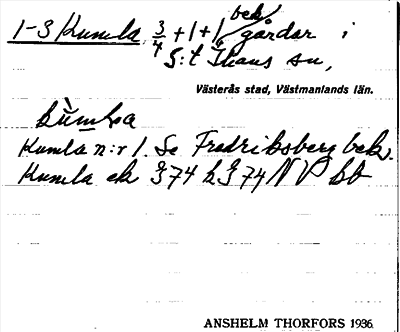 1-3 Kumla 3/4 + 1 + 1 bek gårdar i
S:t Ihans sn,
Västerås stad, Västmanlands län.
Kumla n:r 1. Se Fredriksberg bek.
Kumla ek G 74 h G 74 NV bb
ANSHELM THORFORS 1936.